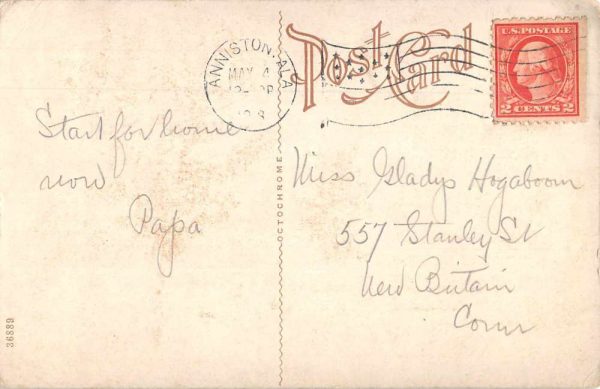 Post Card
ANNISTON, ALA
MAY 4
U.S. POSTAGE
2 CENTS 2
Start for home
now
Papa
OCTOCHROME
Miss Gladys Hogaboom
557 Stanley St
New Britain
Conn
36889